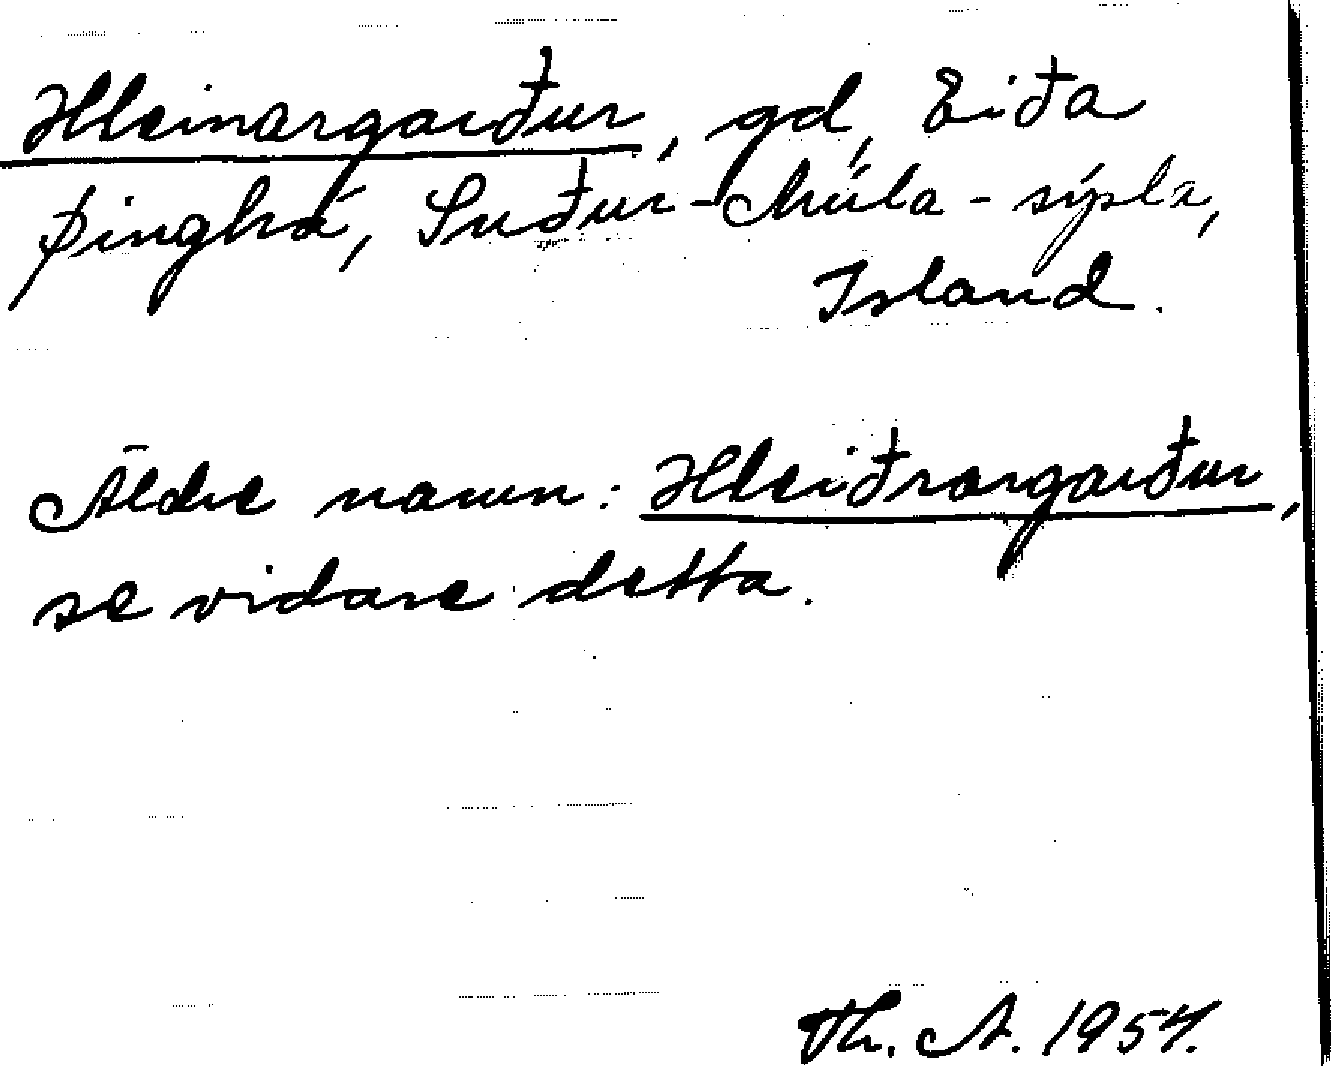 Hleinargarður, gd, Eiða
þinghá, Suður-Múla-sýsla,
Island.
Äldre namn: Hleiðrargarður,
se vidare detta.
Th. A. 1954.